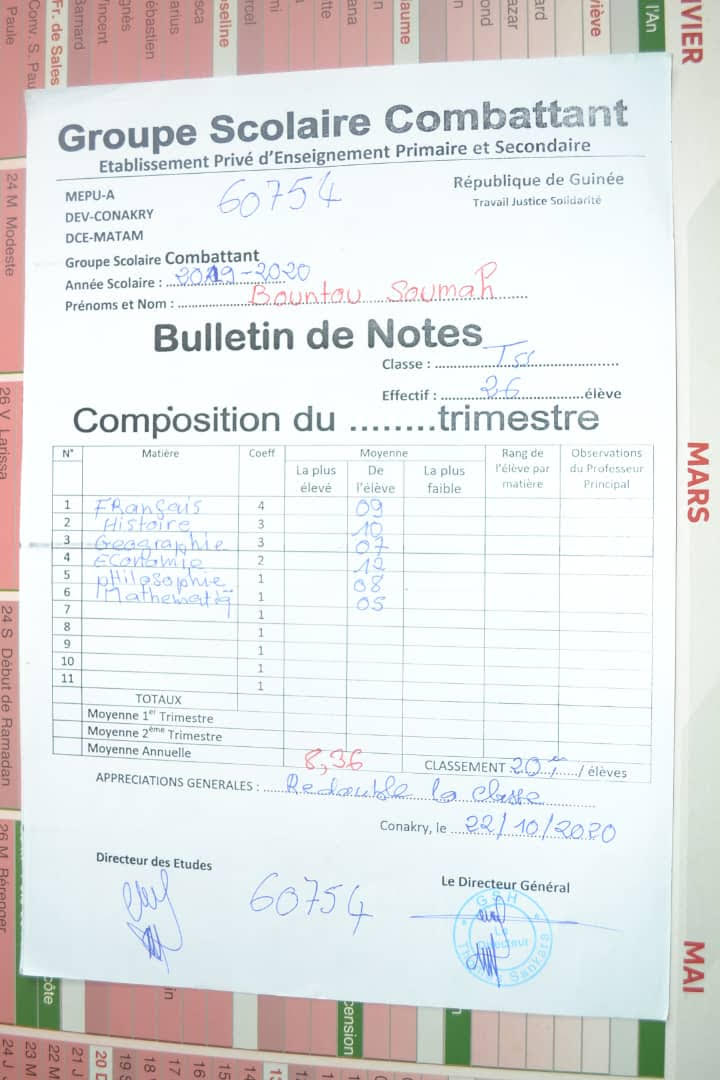 Groupe Scolaire Combattant
Etablissement Privé d'Enseignement Primaire et Secondaire
MEPU-A
DEV-CONAKRY
DCE-MATAM
60754
République de Guinée
Travail Justice Solidarité
Groupe Scolaire Combattant
Année Scolaire : 2019-2020
Prénoms et Nom : Bountou Soumah
Bulletin de Notes
Classe : Tss
Effectif : 26 élève
Composition du ........trimestre
N° Matière Coeff Moyenne Rang de l'élève par matière Observations du Professeur Principal
La plus élevé De l'élève La plus faible
1 Français 4 09
2 Histoire 3 10
3 Geographie 3 07
4 Economie 2 12
5 philosophie 1 08
6 Mathematiq 1 05
7 1
8 1
9 1
10 1
11 1
TOTAUX
Moyenne 1er Trimestre
Moyenne 2ème Trimestre
Moyenne Annuelle 8,36 CLASSEMENT 20è / élèves
APPRECIATIONS GENERALES : Redouble la classe
Conakry, le 22/10/2020
Directeur des Etudes
60754
Le Directeur Général
GSH
Le Directeur
Sankara
JANVIER
MARS
MAI
24 M Modeste
26 V Larissa
24 S Début de Ramadan
26 M Bérenger
Fr. de Sales
Conv. S. Pau
Paule
l'An